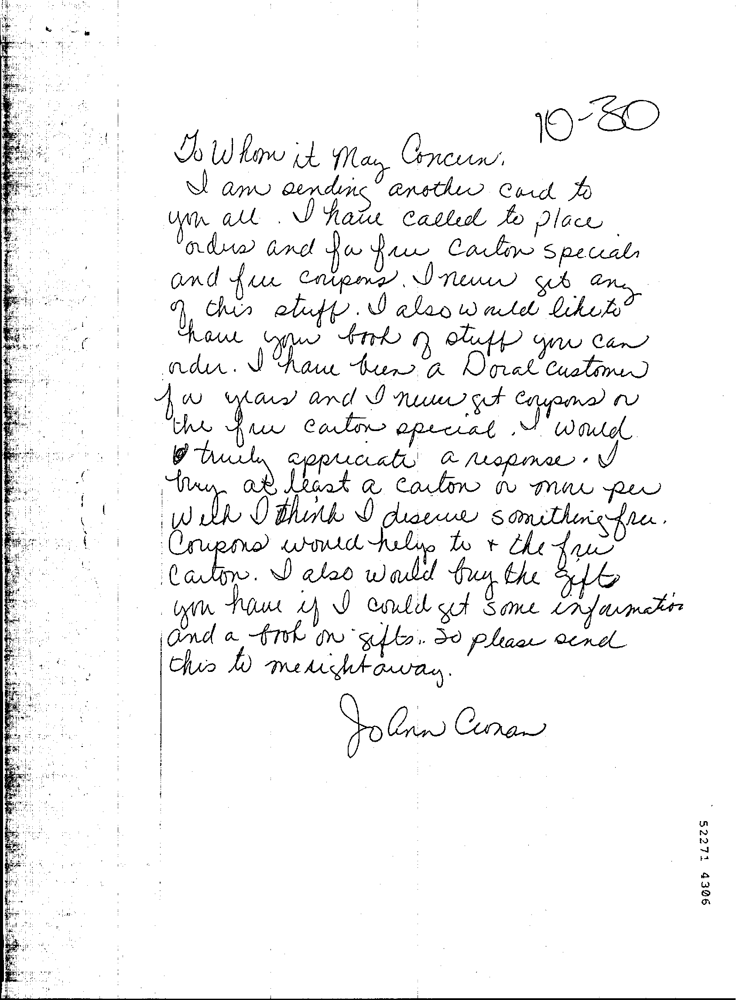 10-30
To Whom it May Concern.
I am sending another card to
you all. I have called to place
orders and for free Carton specials
and free coupons. I never get any
of this stuff. I also would like to
have your book of stuff you can
order. I have been a Doral customer
for years and I never get coupons or
the free carton special. I would
truely appreciate a response. I
buy at least a carton or more per
week I think I deserve something free.
Coupons would help to + the free
Carton. I also would buy the gifts
you have if I could get some information
and a book on gifts.. So please send
this to me right away.
JoAnn
52271 4306